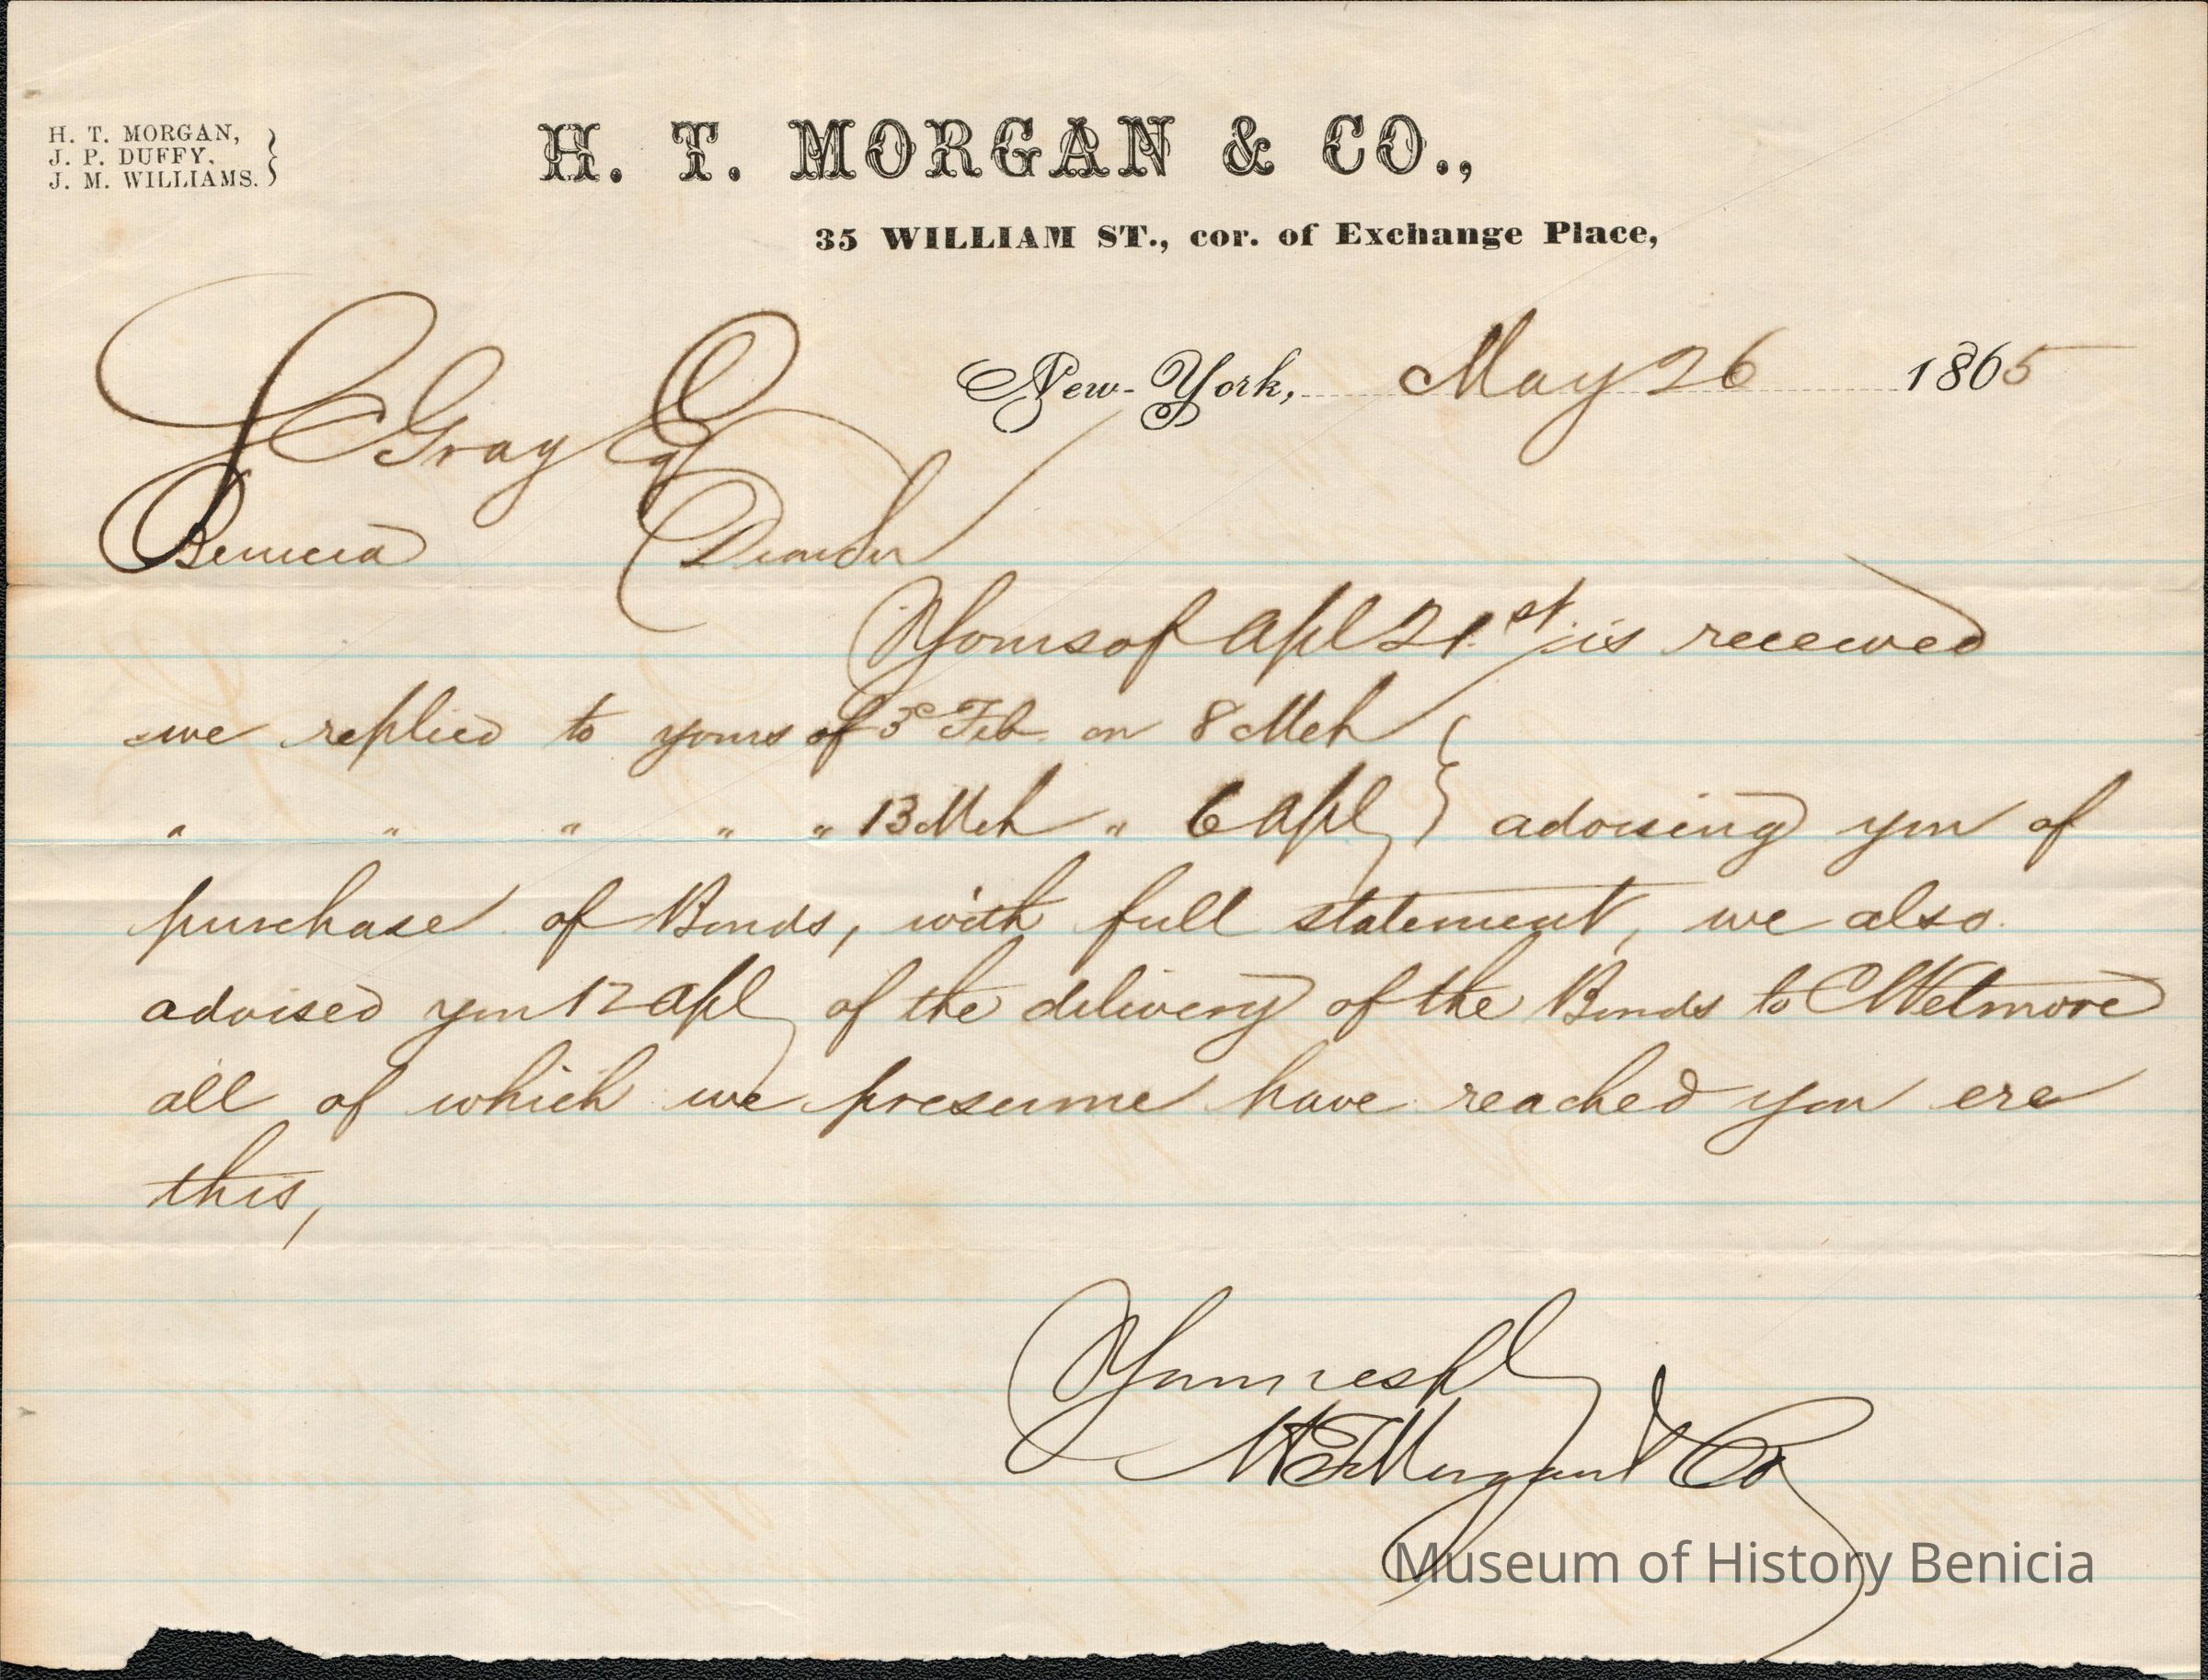 H. T. MORGAN,
J. P. DUFFY,
J. M. WILLIAMS.
H. T. MORGAN & CO.,
35 WILLIAM ST., cor. of Exchange Place,
New-York, May 26 1865
Gray Esq
Benicia Dear Sir
Yours of Apl 21st is received
we replied to yours of 3d Feb. on 8 Mch
" " " " " 13 Mch " 6 Apl } advising you of
purchase of Bonds, with full statement, we also
advised you 12 Apl of the delivery of the Bonds to C Wetmore
all of which we presume have reached you ere
this,
Yours respl
H T Morgan & Co
Museum of History Benicia